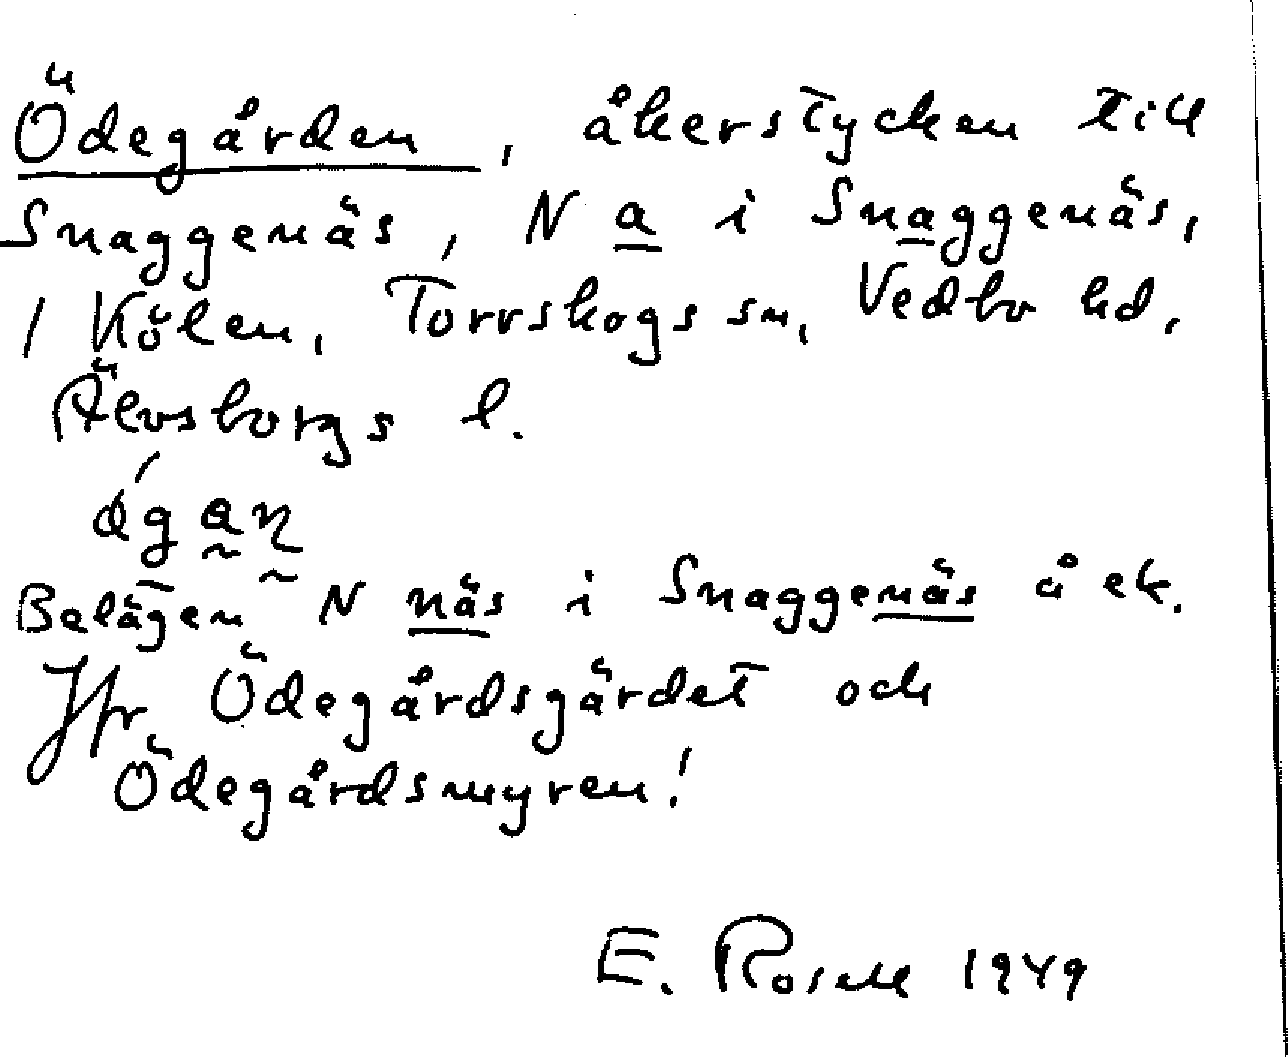 Ödegården, åkerstycken till
Snaggenäs, N a i Snaggenäs,
/ Kölen, Torrskogs sn, Vedbo hd,
Älvsborgs l.
Belägen N näs i Snaggenäs å ek.
Jfr Ödegårdsgärdet och
Ödegårdsmyren!
E. Rosell 1949